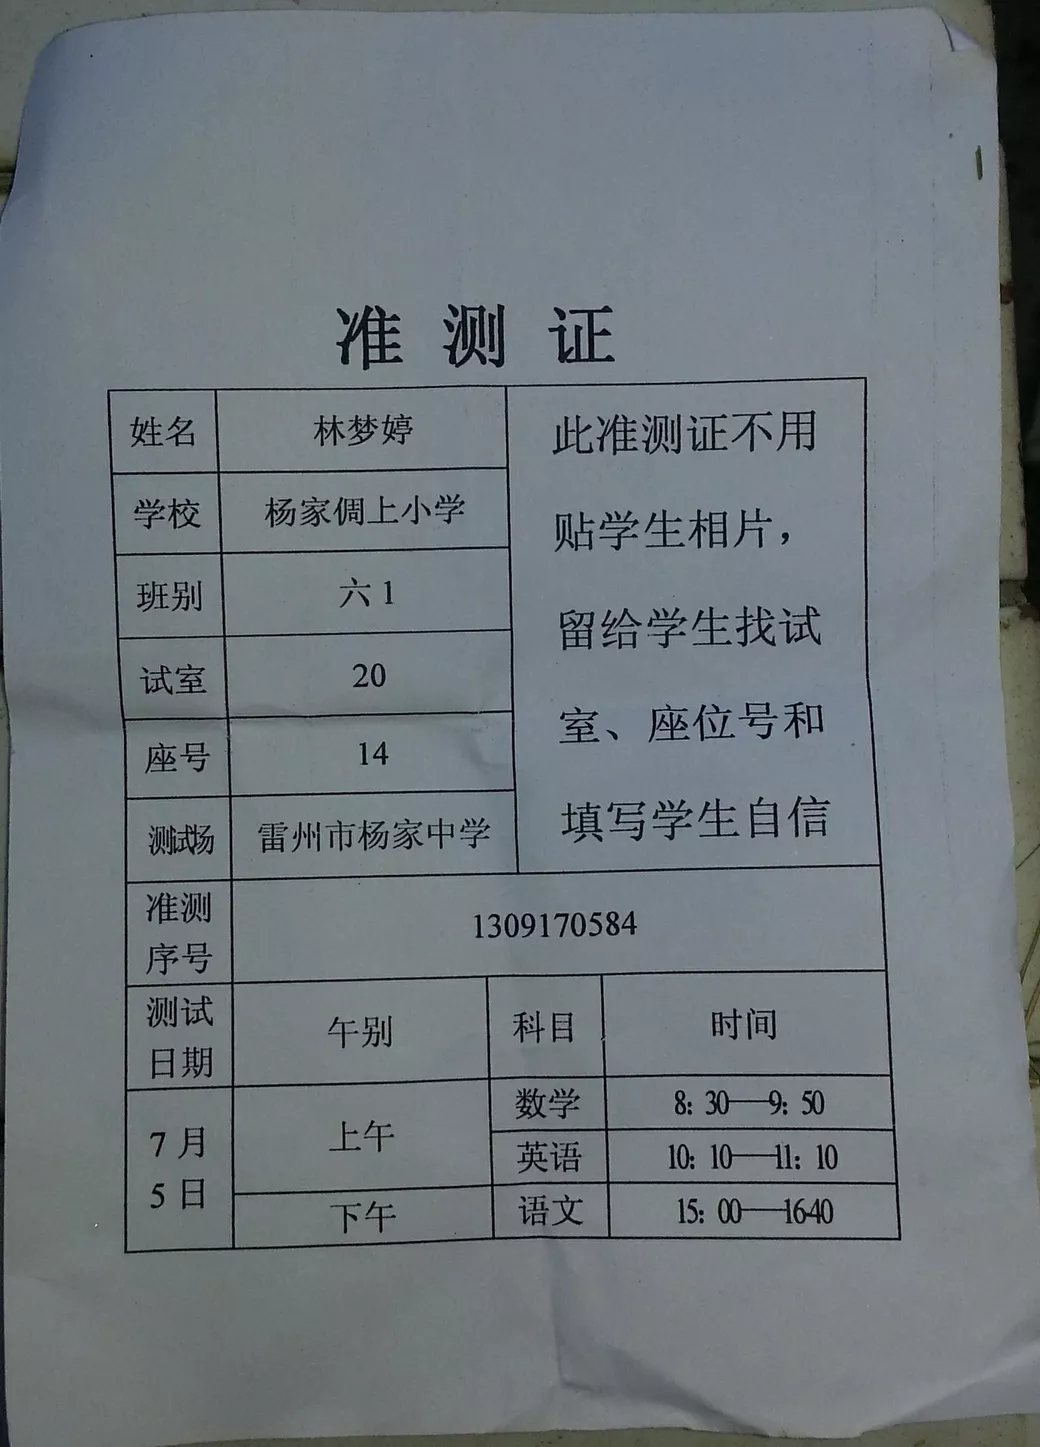 准测证
姓名 林梦婷
此准测证不用
学校 杨家倜上小学
贴学生相片，
班别 六1
留给学生找试
试室 20
室、座位号和
座号 14
填写学生自信
测试场 雷州市杨家中学
准测
序号
1309170584
测试
日期
午别 科目 时间
7月
5日
上午 数学 8：30——9：50
英语 10：10——11：10
下午 语文 15：00——16:40